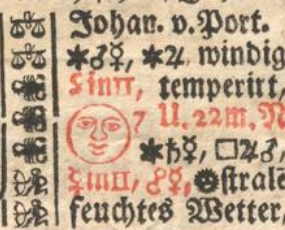 Johan. v. Port.
✶♂☿, ✶♃ windig
☾ in ♊, temperirt,
7 U. 22 m. N
✶♄☿, □♃♂,
☾ in ♊, ☍☿, ſtrale
feuchtes Wetter,